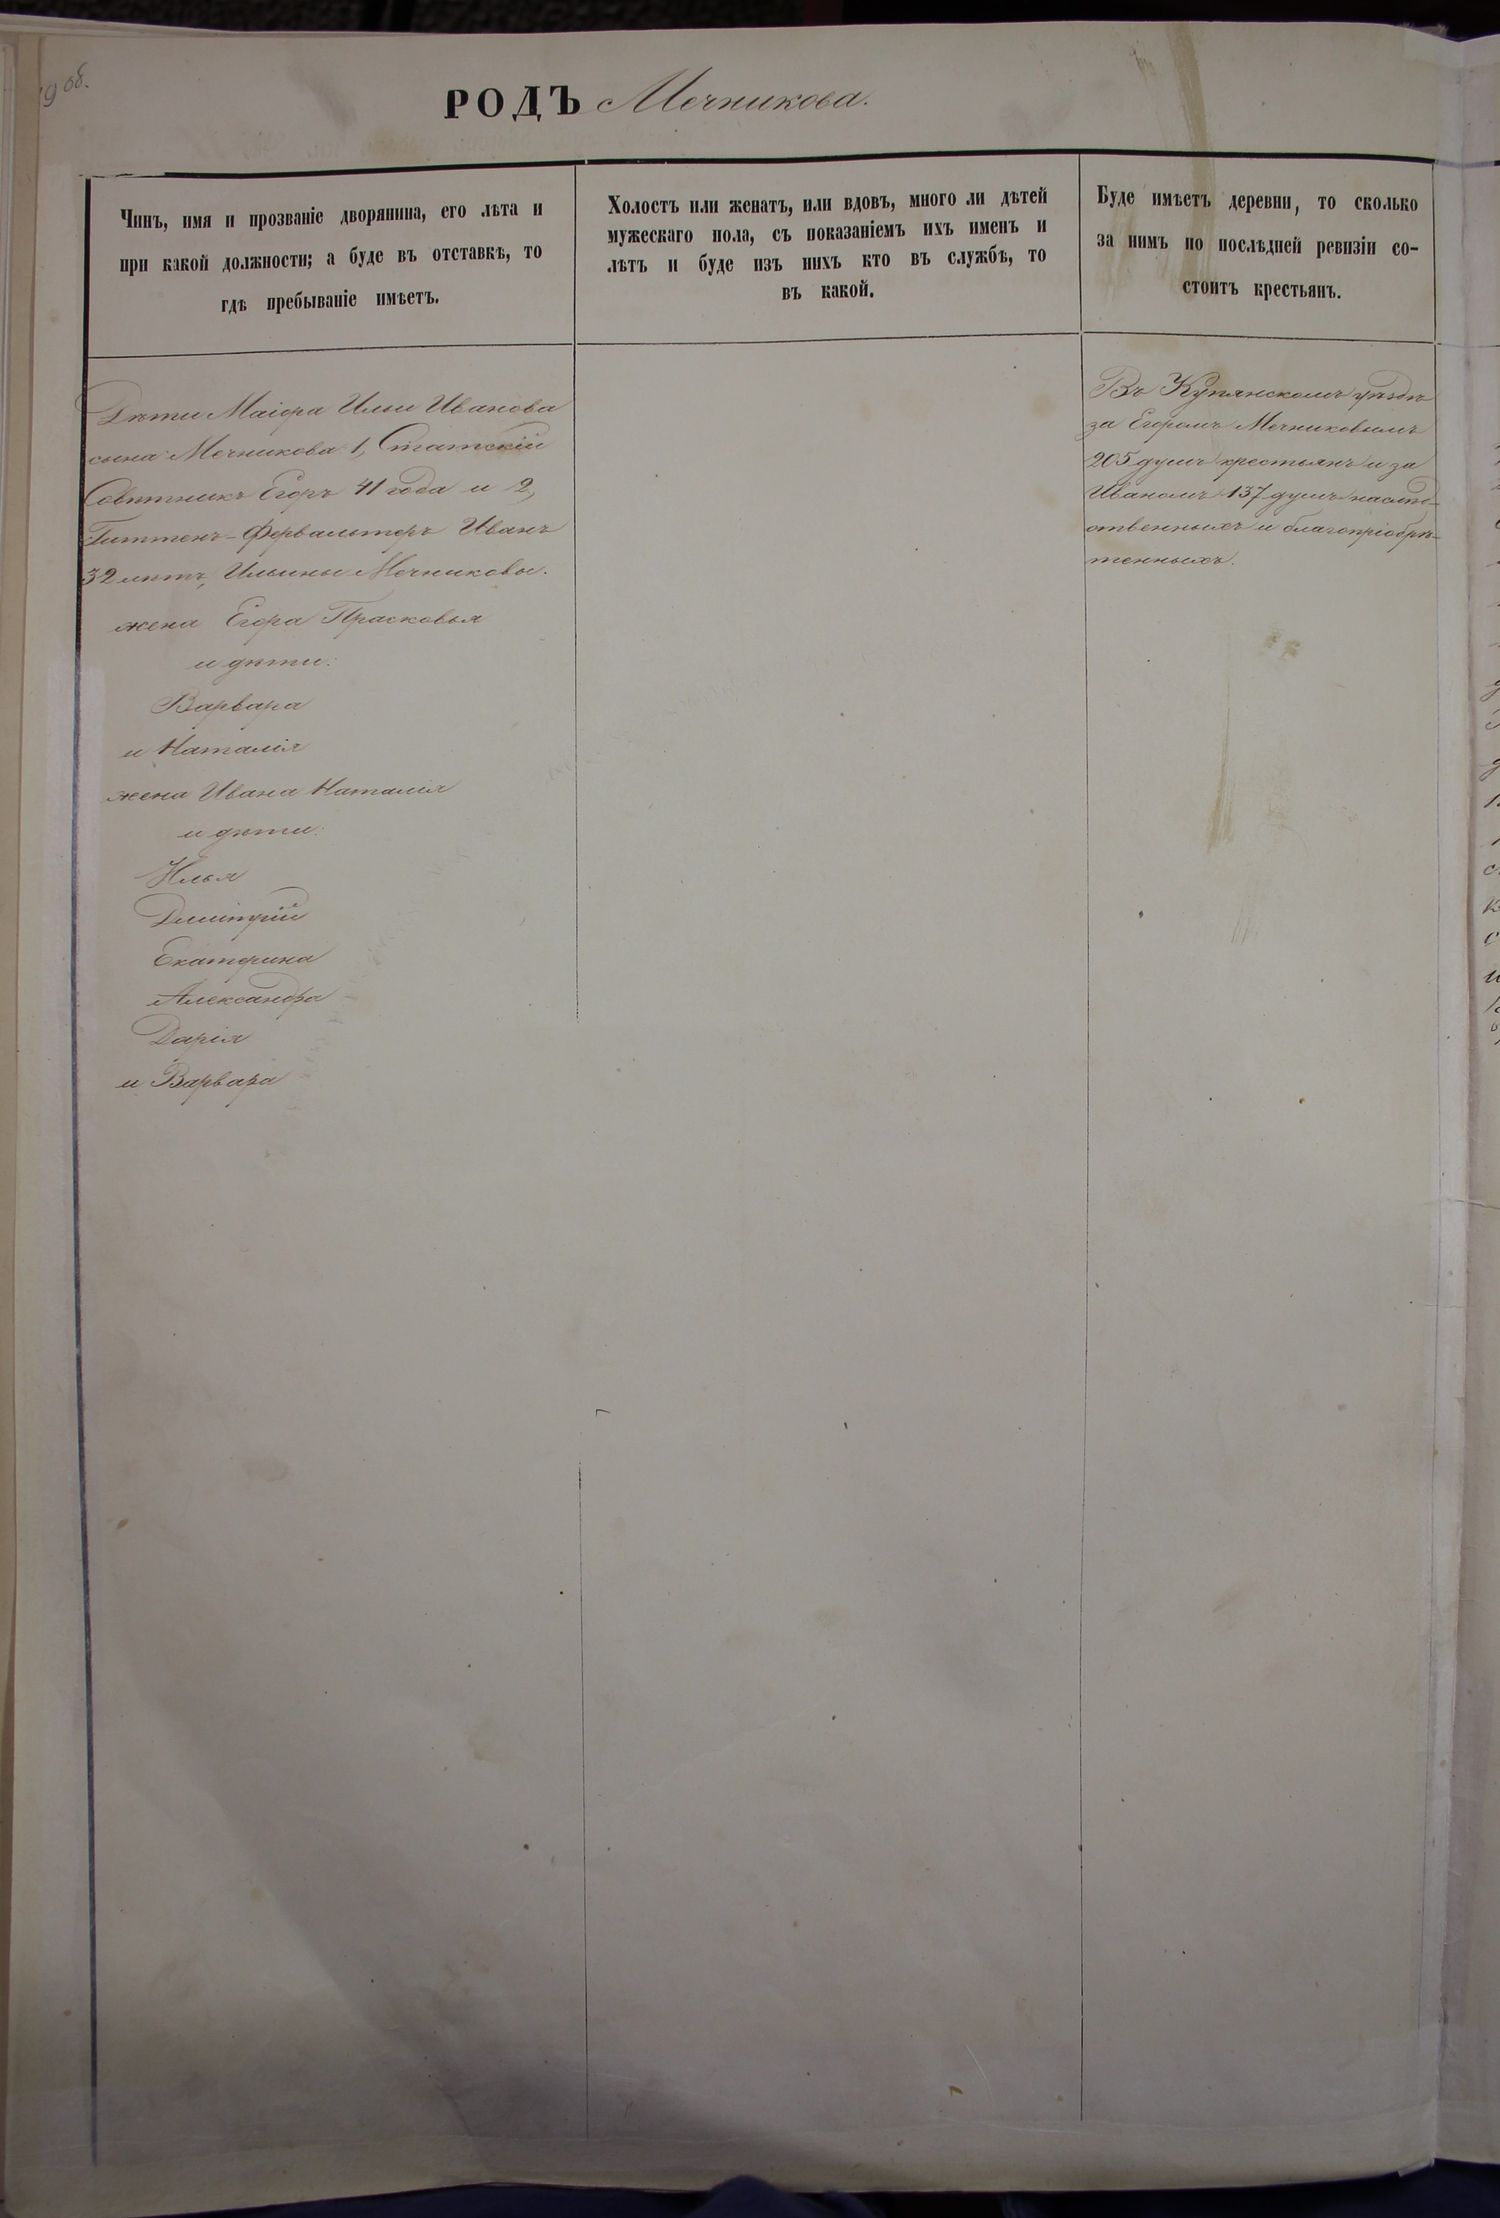 9 об.
РОДЪ Мечникова.
Чинъ, имя и прозваніе дворянина, его лѣта и
при какой должности; а буде въ отставкѣ, то
гдѣ пребываніе имѣетъ.
Холостъ или женатъ, или вдовъ, много ли дѣтей
мужескаго пола, съ показаніемъ ихъ именъ и
лѣтъ и буде изъ нихъ кто въ службѣ, то
въ какой.
Буде имѣетъ деревни, то сколько
за нимъ по послѣдней ревизіи со-
стоитъ крестьянъ.
Дѣти Маіора Ильи Иванова
сына Мечникова: 1, Статскій
Совѣтникъ Егоръ 41 года и 2,
Гиттенъ-Фервальтеръ Иванъ
32 лѣтъ, Ильины Мечниковы.
жена Егора Прасковья
и дѣти:
Варвара
и Наталія
жена Ивана Наталія
и дѣти:
Илья
Дмитрій
Екатерина
Александра
Дарія
и Варвара
Въ Купянскомъ уѣздѣ
за Егоромъ Мечниковымъ
205 душъ крестьянъ и за
Иваномъ 137 душъ наслѣд-
ственныхъ и благопріобрѣ-
тенныхъ.